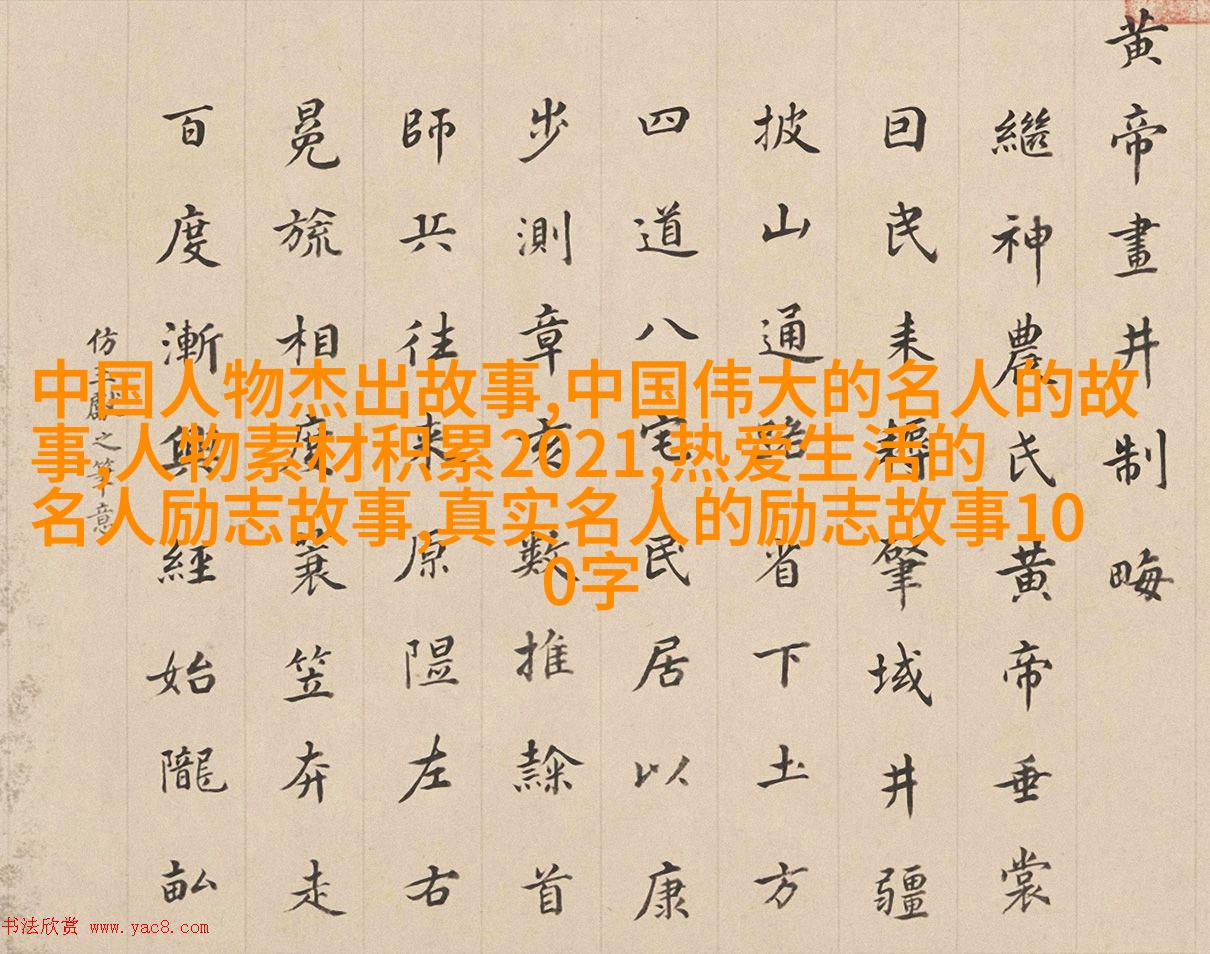 中国人物杰出故事,中国伟大的名人的故
事,人物素材积累2021,热爱生活的
名人励志故事,真实名人的励志故事10
0字
黄帝畫井制畮
繼神農氏黄帝垂裳
囙民耒耨肇域井疆
披山通省下土方
四道八宅民居以康
步測章亥數推隸首
師兵往來原隰左右
冕旒相度蓑笠奔走
百度漸興經始隴畝
仿王獻之筆意
书法欣赏 www.yac8.com